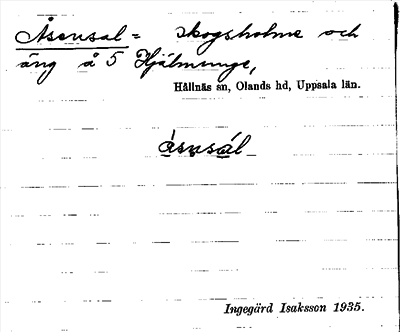 Åsensal = skogsholme och
äng å 5 Hjälmunge,
Hållnäs sn, Olands hd, Uppsala län.
åsn̥sál
Ingegärd Isaksson 1935.